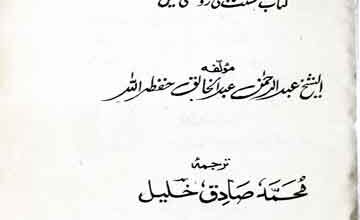 کتاب و سنت کی روشنی میں
مؤلفه
الشیخ عبدالرحمٰن عبدالخالق حفظہ اللہ
ترجمۂ
محمّد صادق خلیل